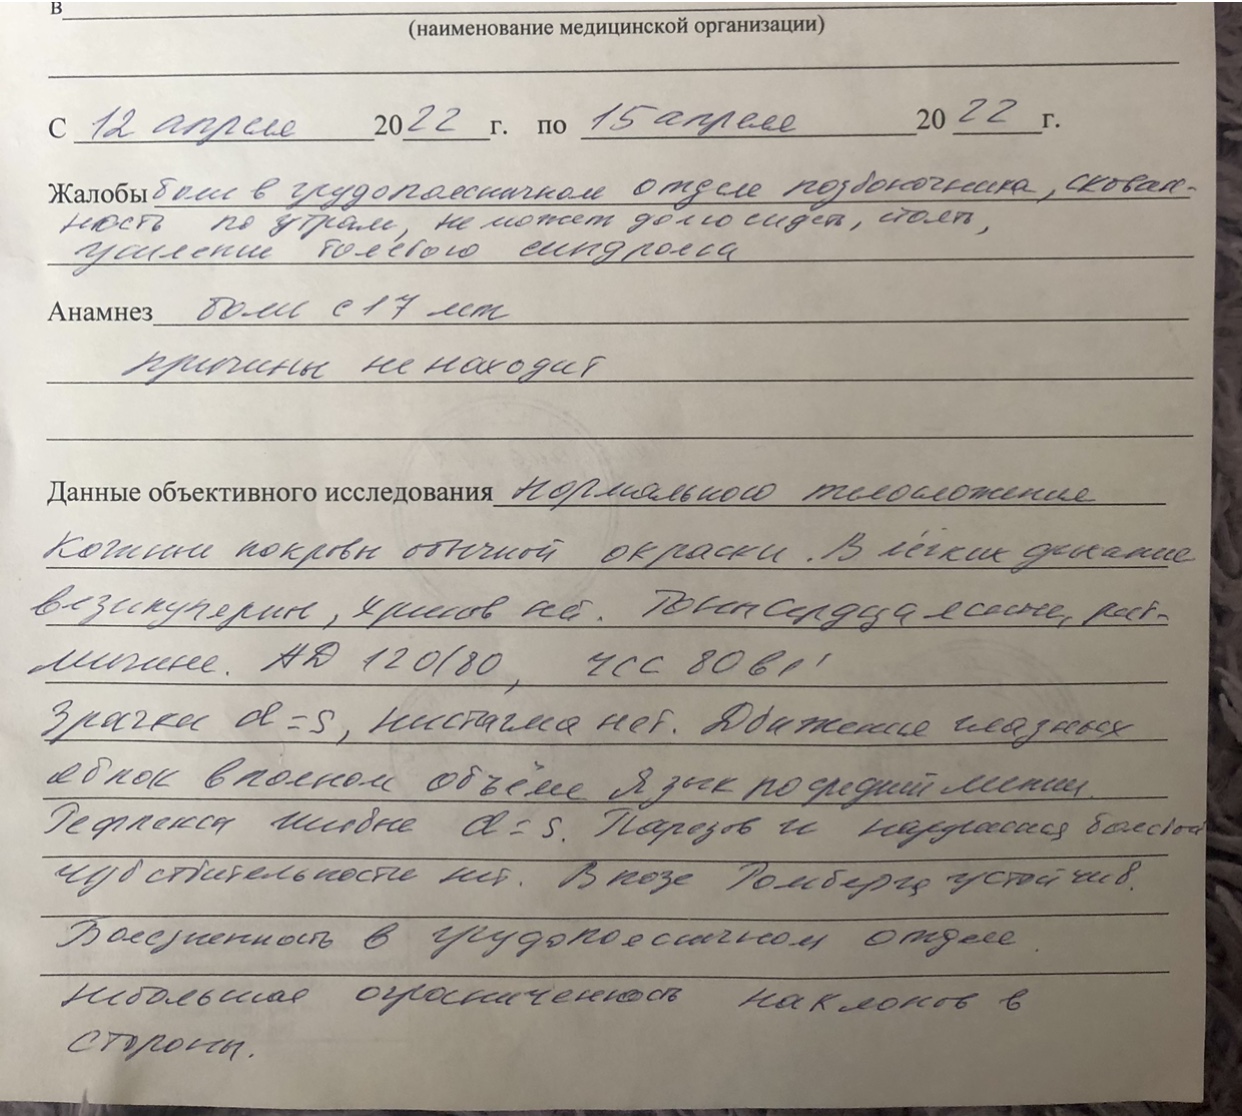 в
(наименование медицинской организации)
С 12 апреля 2022 г. по 15 апреля 2022 г.
Жалобы боли в грудопоясничном отделе позвоночника, скован-
ность по утрам, не может долго сидеть, стоять,
усиление болевого синдрома
Анамнез боли с 17 лет
причины не находит
Данные объективного исследования Нормального телосложения
Кожные покровы обычной окраски. В лёгких дыхание
везикулярн, хрипов нет. Тоны сердца ясные, рит-
мичные. АД 120/80, ЧСС 80 в 1'
Зрачки d=s, нистагма нет. Движения глазных
яблок в полном объёме Язык по средней линии
Рефлексы живые d=s. Парезов и нарушения болевой
чувствительности нет. В позе Ромберга устойчив.
Болезненность в грудопоясничном отделе.
Небольшая ограниченность наклонов в
стороны.